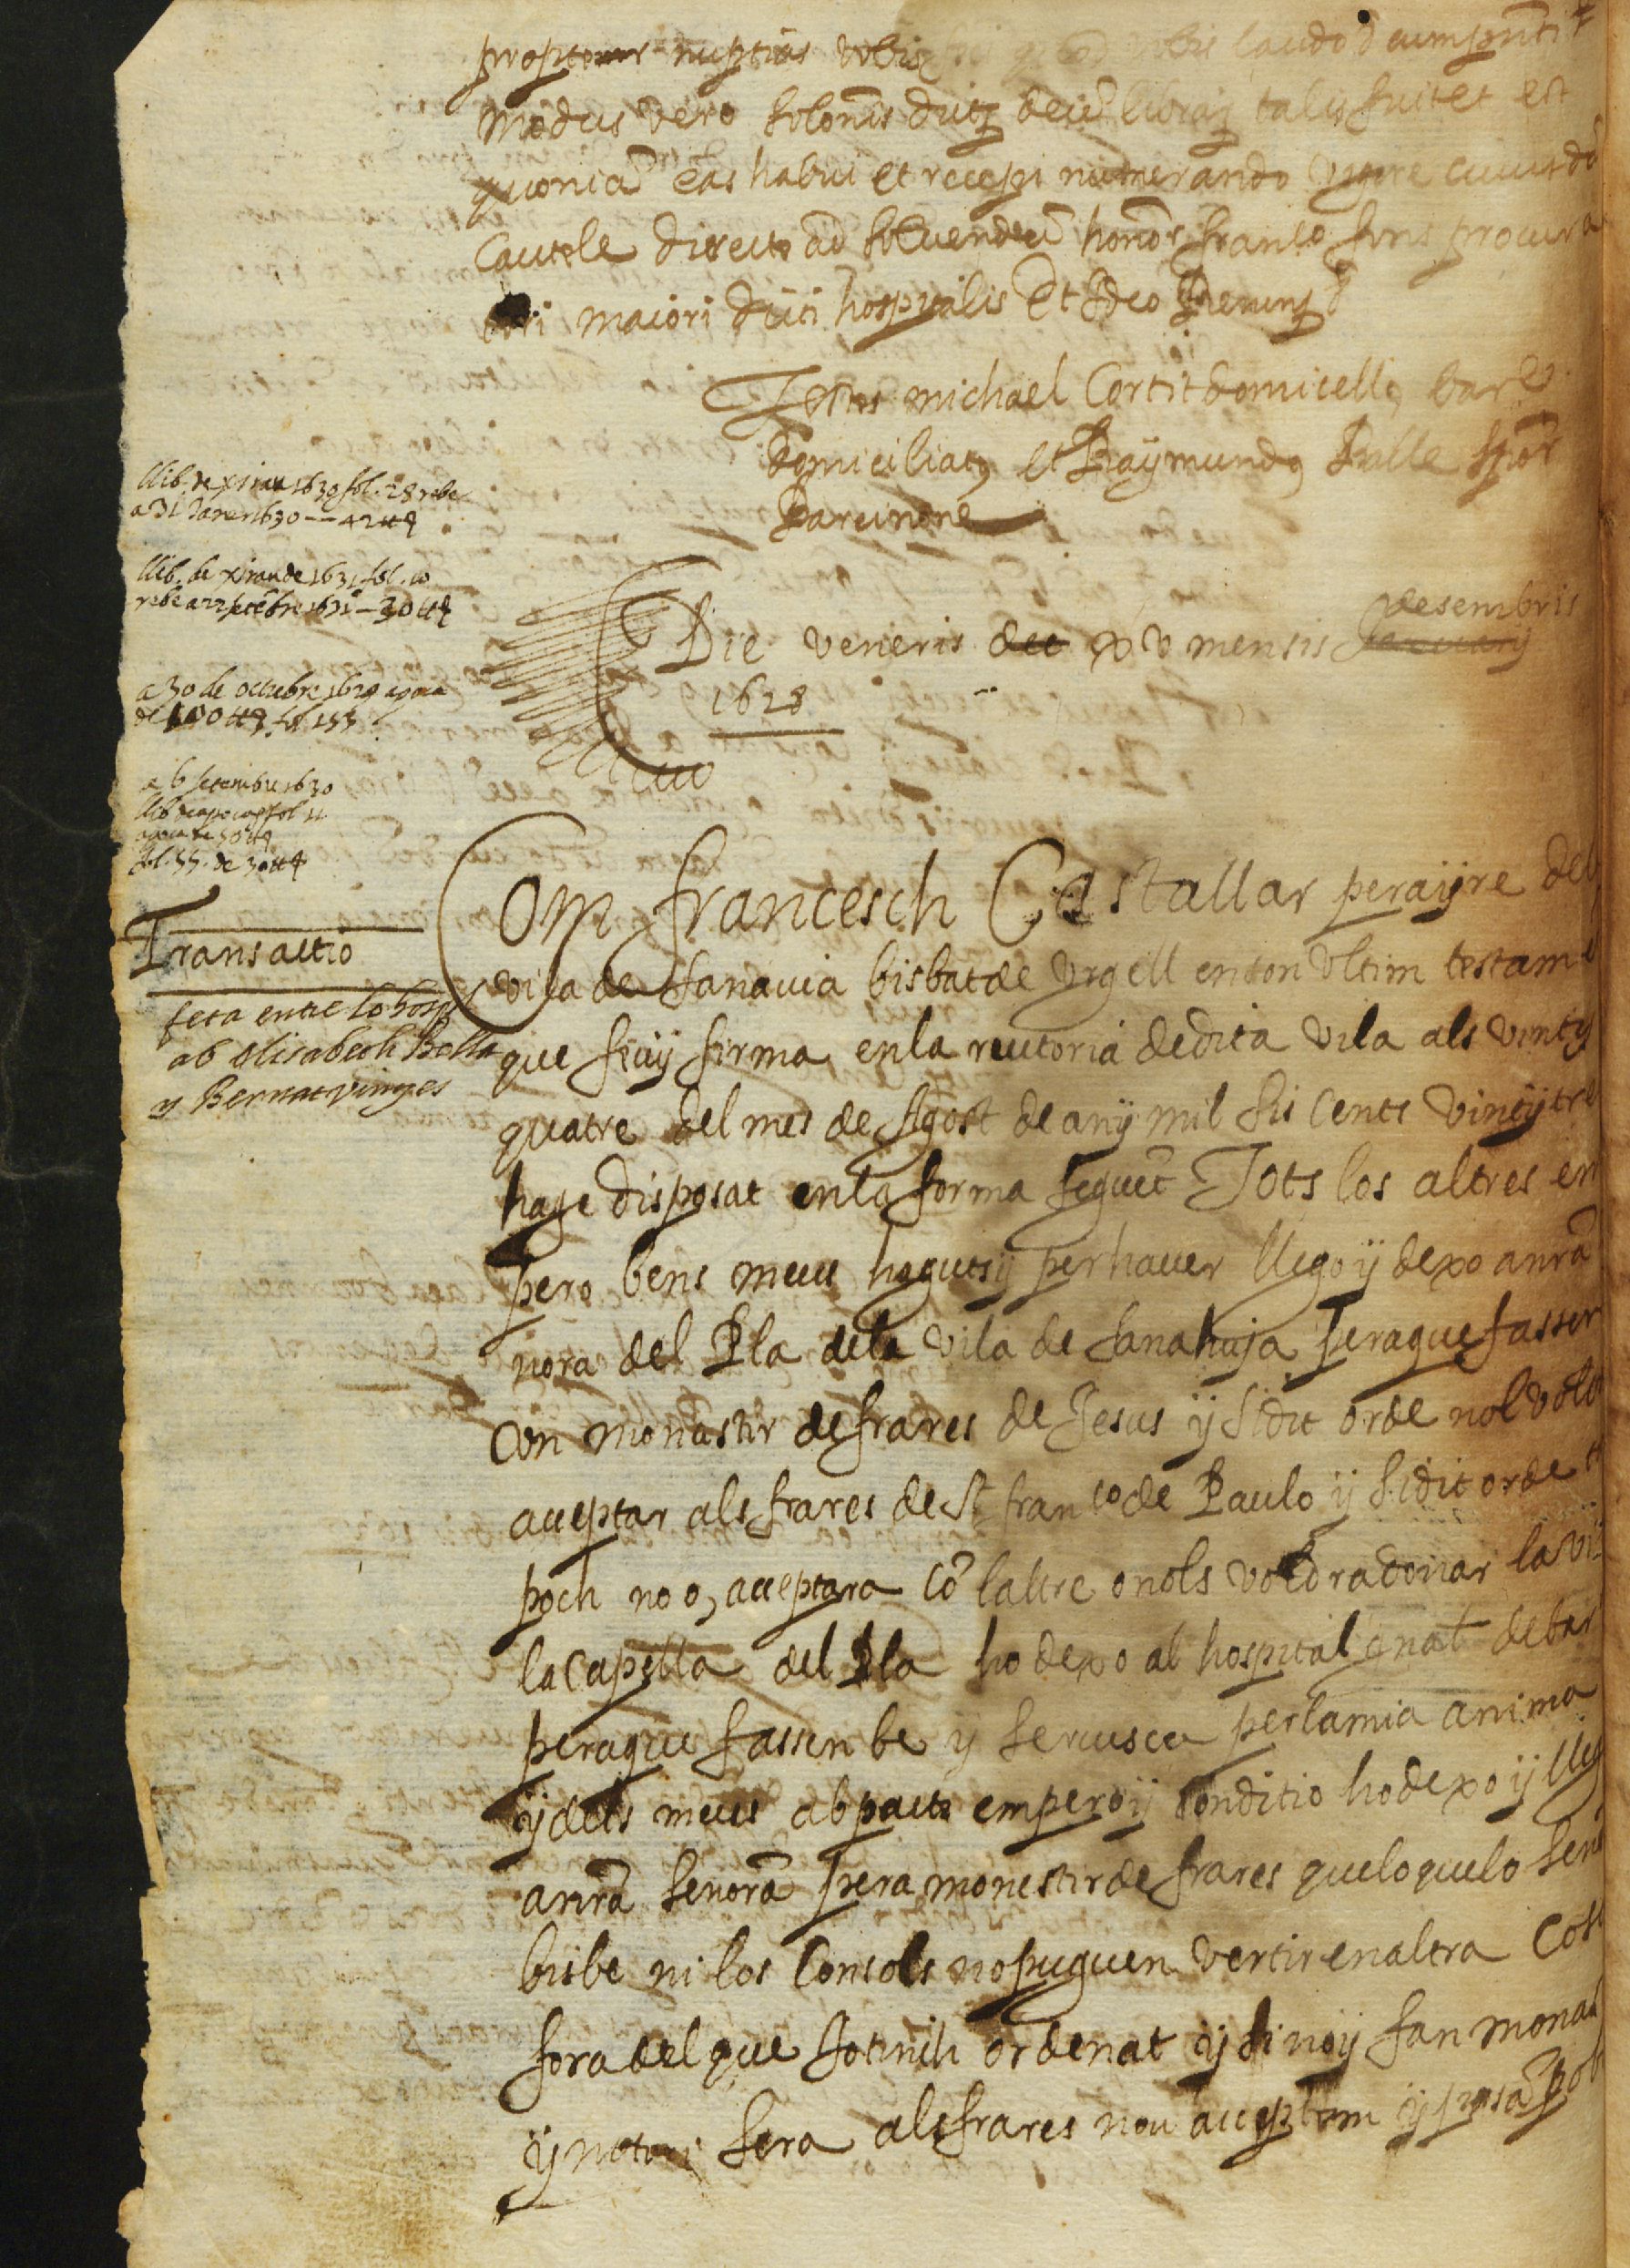 propter nuptias vobis laudo
modus vero solonis dictq deu librarq talis fuit et est
quonia eas habui et recepi numerando vigore cuiusda
cautele directe ad solvendu honor franco fons procura
tori maiori dicti hospitalis Et Ideo
Testes michael Cortit domicellq bar
domiciliatq et Raymundq
Barcinone
llib. de xiran 1630 fol. 28 rebe
a 31 Janer 1630 — 42 ll q
llib. de xiran de 1631 fol. 10
rebe a 22 setebre 1631 — 30 ll q
a 30 de octubre 1629 apoca
de 100 ll q fol. 155
a 6 setembre 1630
llib de apocas fol 11
apoca de 50 ll q
fol. 55. de 30 ll q
Die veneris dec xv mensis Januarij desembris
1628
Transactio
feta entre lo hospl
ab Elisabeth Bella
y Bernat vinyes
Com francesch Castallar perayre del
vila de sanauia bisbat de Vrgell en son vltim testame
que feu y firma en la rectoria de dita vila als vint y
quatre del mes de Agost de any mil sis Cents vint y tre
hage disposat en la forma seguet Tots los altres em
pero bens meus haguts y per hauer llego y dexo a nra
nora del Pla de la vila de sanahuja pera que fassen
Vn monastir de frares de Jesus y si dit orde nol vold
acceptar als frares de St franco de Paulo y si dit orde t
poch no o, acceptara Co laltre o nols voldra donar la vi
la Capella del Pla ho dexo al hospital gnal de bar
pera que fassen be y per la mia anima
y dels meus ab pacte empero y conditio ho dexo y lleg
a nra senora pera monestir de frares que lo que lo seno
bisbe ni los Consols no puguen vertir en altra cosa
fora del que sotinch ordenat y si noy fan monast
y notori sera als frares nou acceptam y